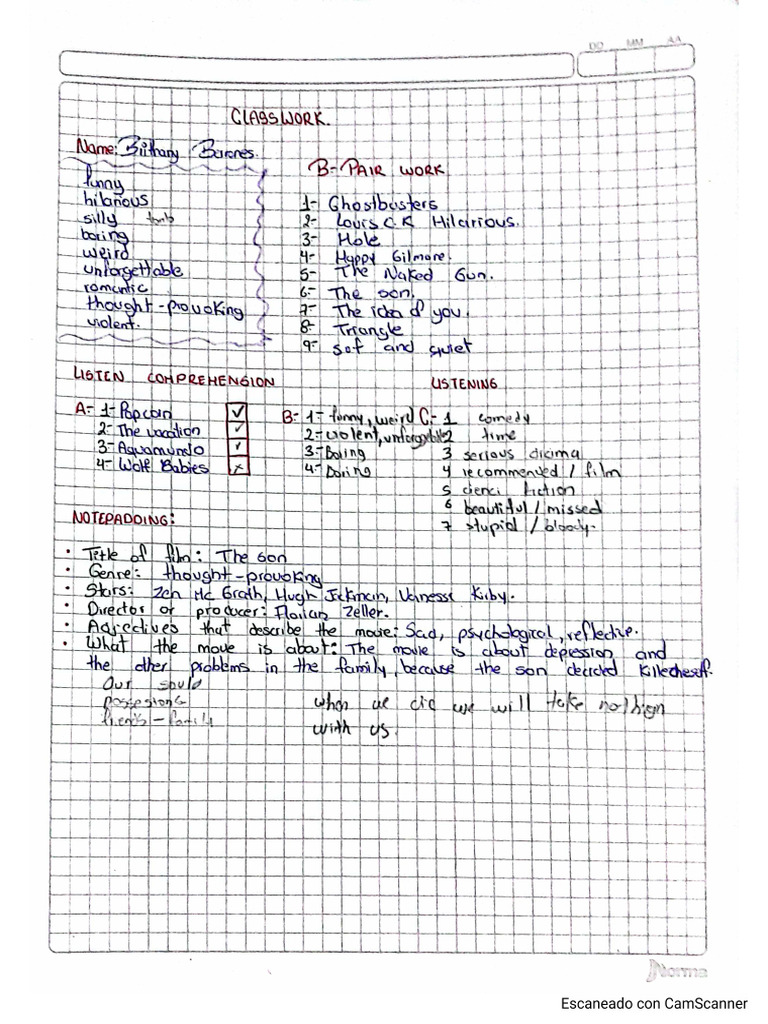 DD MM AA
CLASSWORK.
Name: Brithany Barones.
funny
hilarious
silly
boring
weird
unforgettable
romantic
thought-provoking
violent.
B- PAIR WORK
1- Ghostbusters
2- Louis C.K Hilarious.
3- Hole
4- Happy Gilmore.
5- The Naked Gun.
6- The son.
7- The idea of you.
8- Triangle
9- sof and quiet
LISTEN COMPREHENSION
A- 1- Popcorn ✓
2- The vacation ✓
3- Aquamundo ✓
4- Wolf Babies x
B- 1- funny, weird
2- violent, unforgettable
3- Boring
4- Boring
LISTENING
C- 1 comedy
2 time
3 serious dicima
4 recommended / film
5 cienci fiction
6 beautiful / missed
7 stupid / bloody.
NOTEPADDING:
• Title of film: The son
• Genre: thought-provoking
• Stars: Zen Mc Grath, Hugh Jackman, Vanessa Kirby.
• Director or producer: Florian Zeller.
• Adjectives that describe the movie: Sad, psychological, reflective.
• What the movie is about: The movie is about depression and
the other problems in the family, because the son decided
Our sould
possesions
frients - family
when we die we will take nothign
with us.
Norma
Escaneado con CamScanner